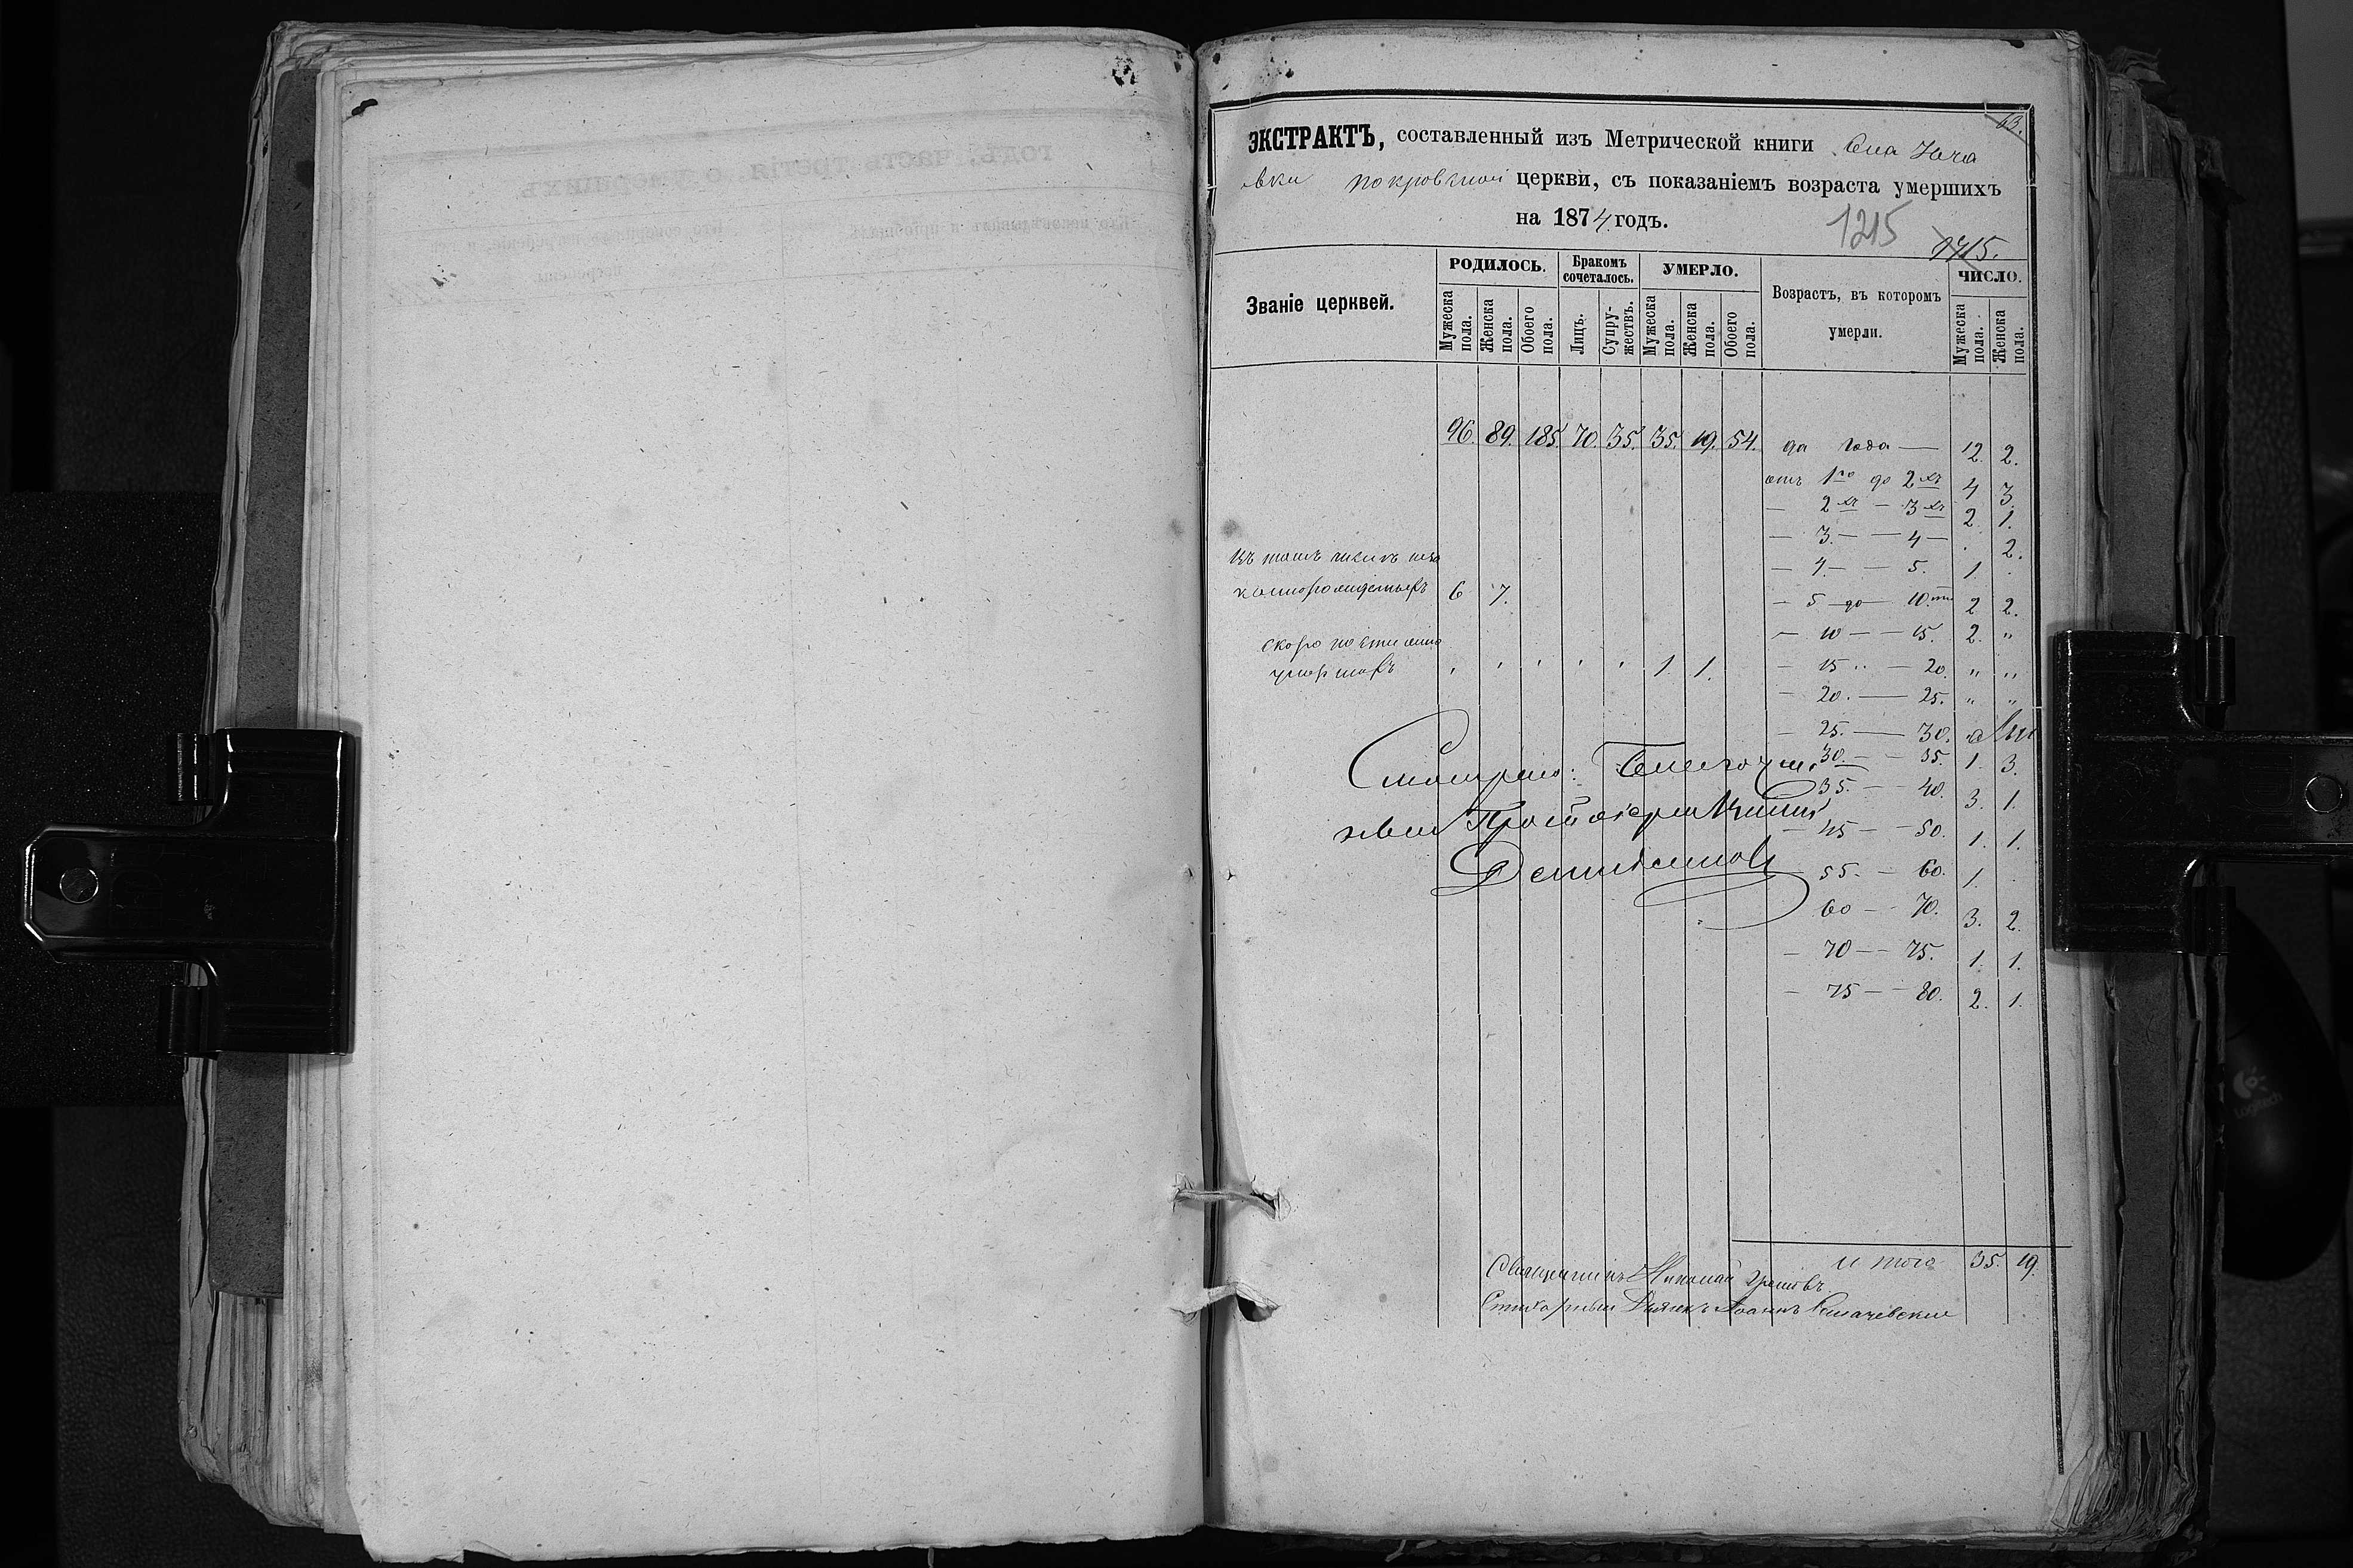 годъ, часть третія, о умершихъ
63.
ЭКСТРАКТЪ, составленный изъ Метрической книги Села Юча
вки покровской церкви, съ показаніемъ возраста умершихъ
на 1874 годъ.
1215
1215.
Званіе церквей.
РОДИЛОСЬ.
Бракомъ сочеталось.
УМЕРЛО.
Возрастъ, въ которомъ умерли.
ЧИСЛО.
Мужеска пола. Женска пола. Обоего пола. Лицъ. Супружествъ. Мужеска пола. Женска пола. Обоего пола. Мужеска пола. Женска пола.
96. 89. 185. 70. 35. 35. 19. 54. до года — 12. 2.
отъ 1го до 2хъ 4 3.
— 2хъ — 3хъ 2. 1.
— 3. — 4 — . 2.
— 4. — 5. 1. .
— 5 — до — 10.ти 2 2.
— 10 — 15. 2. "
— 15 " — 20. " "
— 20. — 25. " "
— 25. — 30.
30. — 35. 1. 3.
35. — 40. 3. 1.
— 45 — 50. 1. 1.
55. — 60. 1. .
60 — 70. 3. 2.
— 70 — 75. 1. 1.
— 75 — 80. 2. 1.
Въ томъ числѣ неза
коннорожденныхъ 6 7.
скоропостижно
умершихъ 1. 1.
Смотрелъ: Благочин
ный Протоіерей
и того 35. 19.
Священникъ Николай
Стихарный Дьячекъ Іоаннъ
Logitech